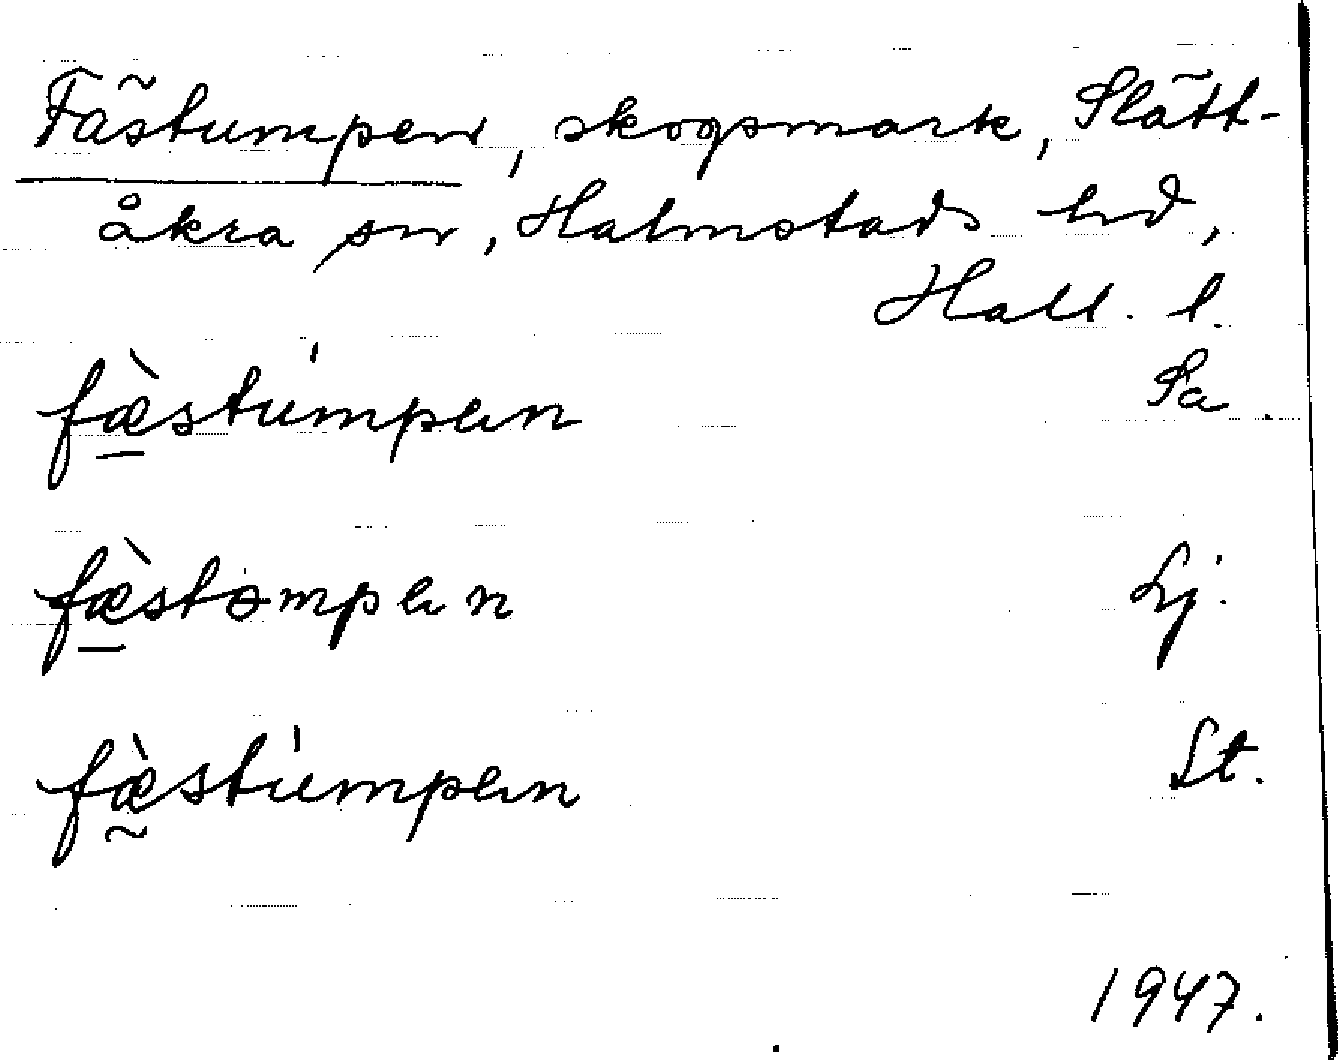 Fästumpen, skogsmark, Slätt-
åkra sn, Halmstads hd,
Hall. l.
fæ̀stumpen Sa
fæ̀stompen Lj.
fæ̀stumpen St.
1947.